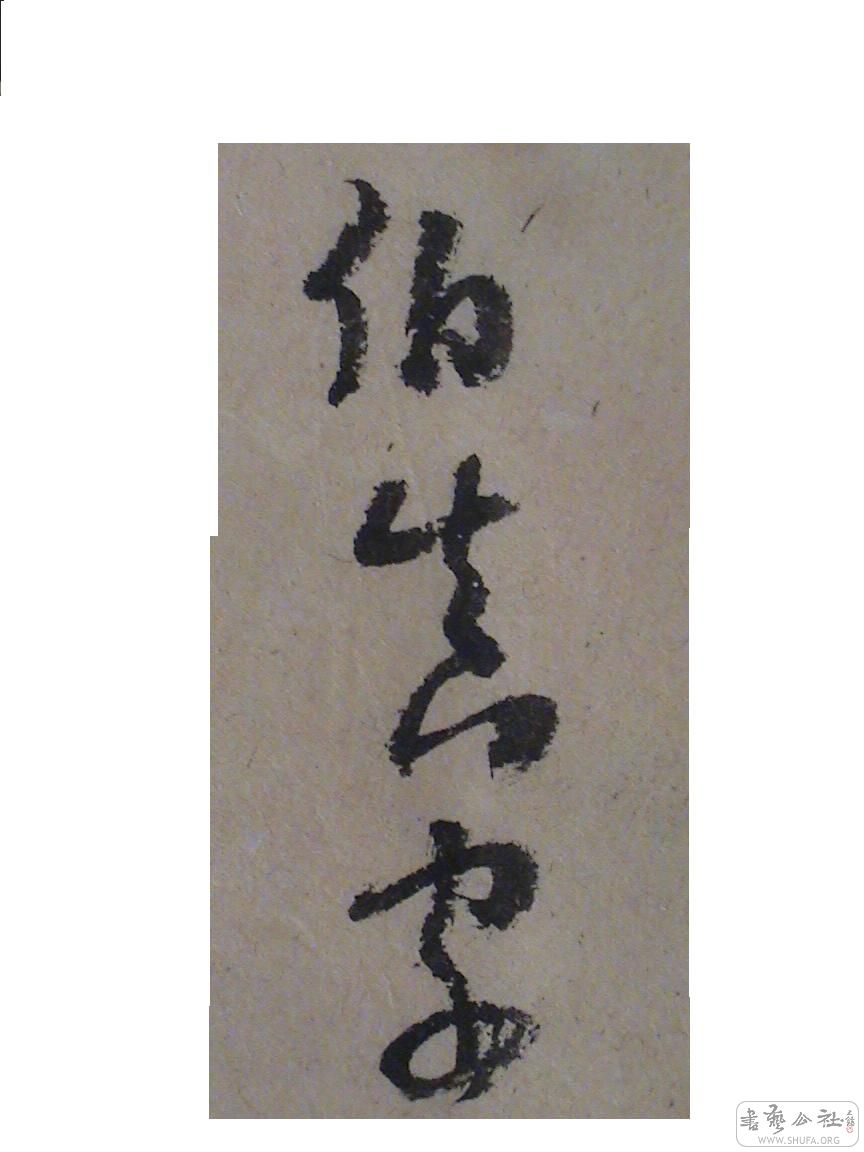 伯
字
書藝公社
WWW.SHUFA.ORG